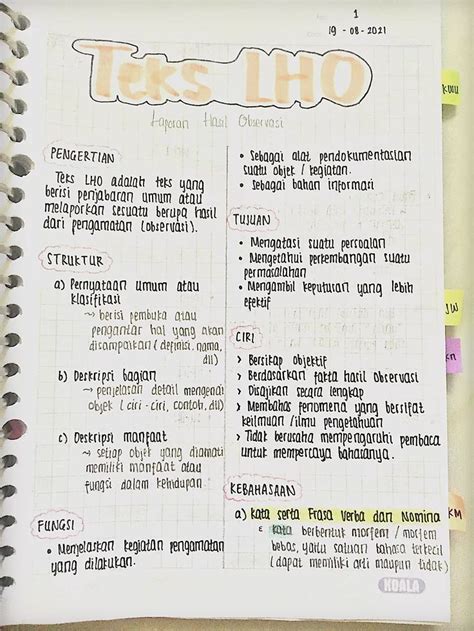 1
19 - 08 - 2021
Teks LHO
Laporan Hasil Observasi
PENGERTIAN
Teks LHO adalah teks yang
berisi penjabaran umum atau
melaporkan sesuatu berupa hasil
dari pengamatan (observasi).
STRUKTUR
a) Pernyataan umum atau
klasifikasi
~> berisi pembuka atau
pengantar hal yang akan
disampaikan ( definisi, nama,
dll)
b) Deskripsi bagian
~> penjelasan detail mengenai
objek ( ciri - ciri, contoh, dll)
c) Deskripsi manfaat
~> setiap objek yang diamati
memiliki manfaat atau
fungsi dalam kehidupan.
FUNGSI
• Menjelaskan kegiatan pengamatan
yang dilakukan.
• Sebagai alat pendokumentasian
suatu objek / kegiatan.
• Sebagai bahan informasi
TUJUAN
• Mengatasi suatu persoalan
• Mengetahui perkembangan suatu
permasalahan
• Mengambil keputusan yang lebih
efektif
CIRI
> Bersikap objektif
> Berdasarkan fakta hasil observasi
> Disajikan secara lengkap
> Membahas fenomena yang bersifat
keilmuan / ilmu pengetahuan
> Tidak berusaha mempengaruhi pembaca
untuk mempercayai bahasanya.
KEBAHASAAN
a) Kata serta Frasa Verba dan Nomina
kata berbentuk morfem / morfem
bebas, yaitu satuan bahasa terkecil
(dapat memiliki arti maupun tidak)
JW
KM
KOALA